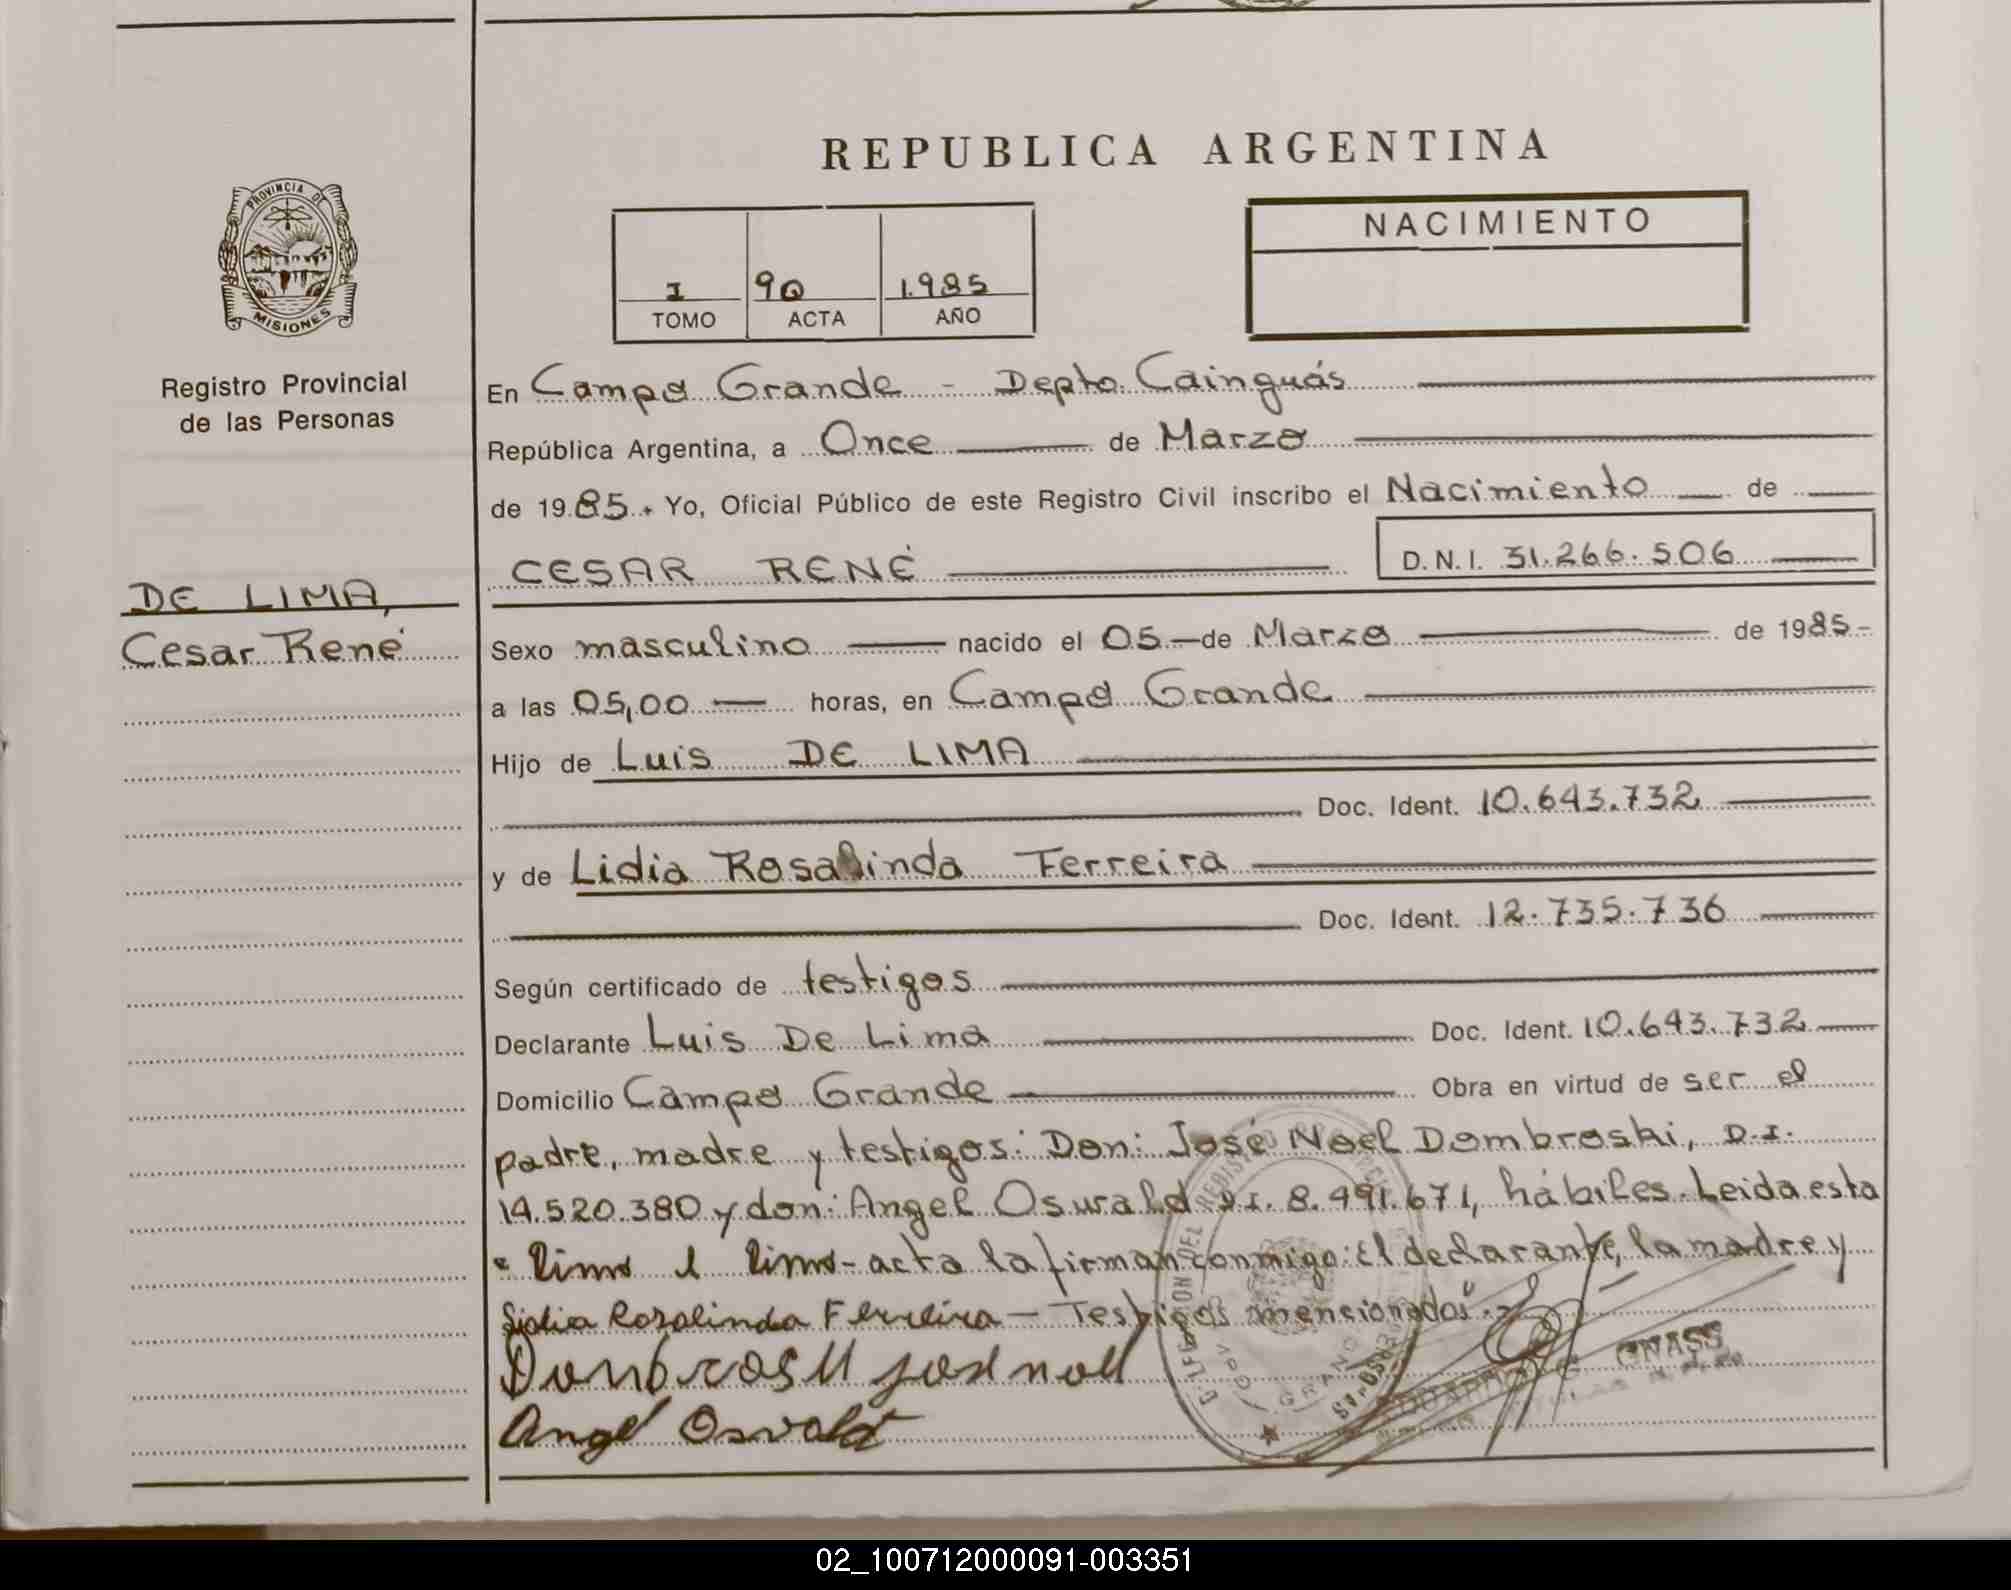 REPUBLICA ARGENTINA
PROVINCIA DE
MISIONES
Registro Provincial
de las Personas
I 90 1.985
TOMO ACTA AÑO
NACIMIENTO
En Campo Grande - Depto. Cainguás
República Argentina, a Once de Marzo
de 1985. Yo, Oficial Público de este Registro Civil inscribo el Nacimiento de
CESAR RENÉ D.N.I. 31.266.506
DE LIMA,
Cesar René
Sexo masculino nacido el 05 de Marzo de 1985-
a las 05,00 horas, en Campo Grande
Hijo de Luis DE LIMA
Doc. Ident. 10.643.732
y de Lidia Rosalinda Ferreira
Doc. Ident. 12.735.736
Según certificado de testigos
Declarante Luis De Lima Doc. Ident. 10.643.732
Domicilio Campo Grande Obra en virtud de ser el
padre, madre y testigos: Don: José Noel Dombroski, D.I.
14.520.380 y don: Angel Oswald D.I. 8.491.671, hábiles. Leida esta
acta la firman conmigo: El declarante, la madre y
Lidia Rosalinda Ferreira - Testigos mencionados.
Angel Osvald
GRANDE
02_100712000091-003351